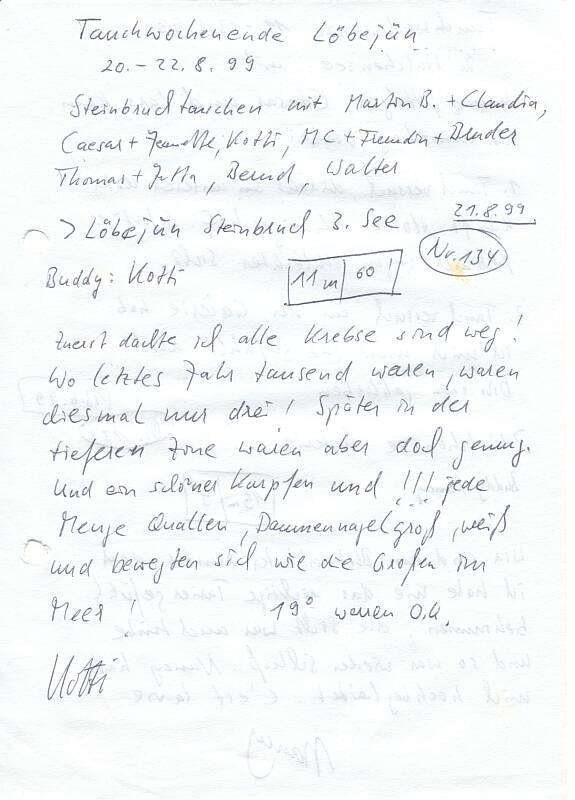 Tauchwochenende Löbejün
20.-22.8.99
Steinbruchtauchen mit Martin B. + Claudia,
Caesar + Jeanette, Kotti, MC + Freundin + Bruder
Thomas + Jutta, Bernd, Walter
> Löbejün Steinbruch 3. See 21.8.99
Nr. 134
Buddy: Kotti 11 m 60'
Zuerst dachte ich alle Krebse sind weg!
Wo letztes Jahr tausend waren, waren
diesmal nur drei! Später in der
tieferen Zone waren aber doch genung.
Und ein schöner Karpfen und !!! jede
Menge Quallen, Daumennagelgroß, weiß
und bewegten sich wie die Großen im
Meer! 19° waren O.K.
Kotti